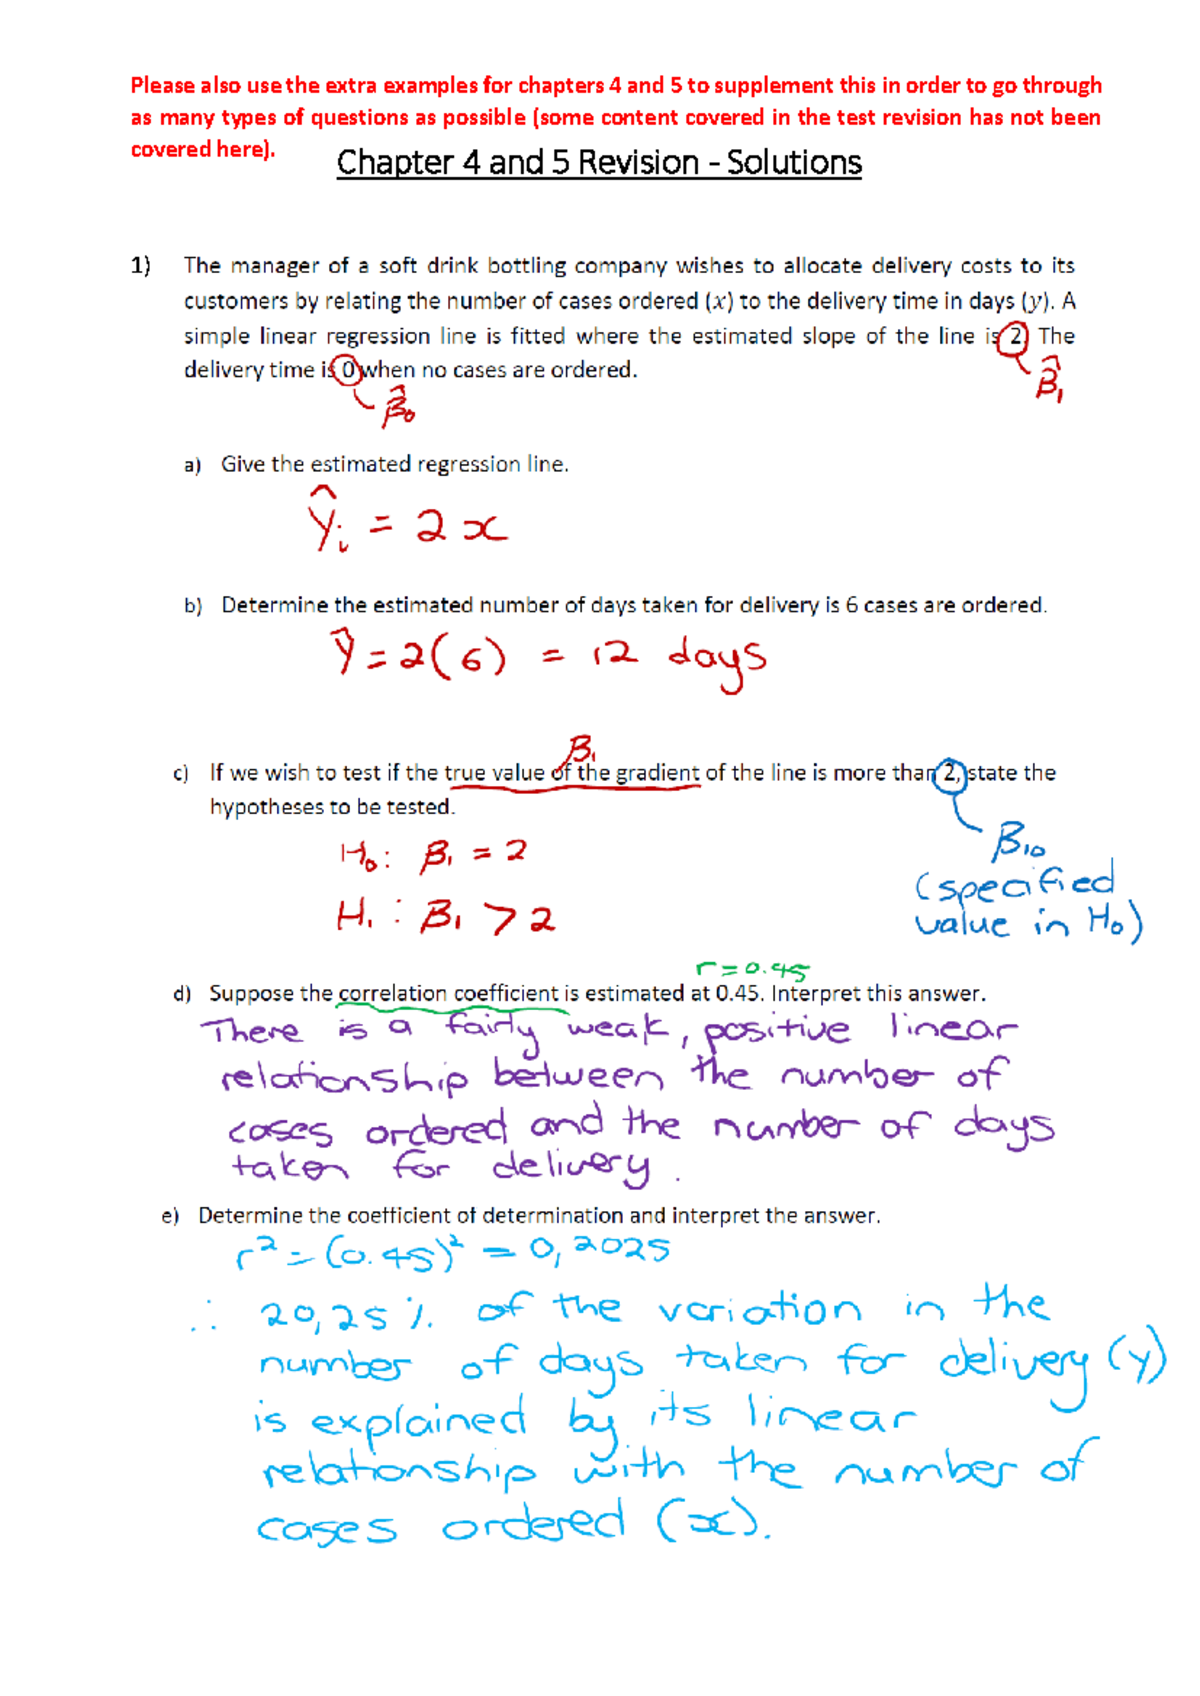 Please also use the extra examples for chapters 4 and 5 to supplement this in order to go through
as many types of questions as possible (some content covered in the test revision has not been
covered here).
Chapter 4 and 5 Revision - Solutions
1) The manager of a soft drink bottling company wishes to allocate delivery costs to its
customers by relating the number of cases ordered (x) to the delivery time in days (y). A
simple linear regression line is fitted where the estimated slope of the line is 2. The
delivery time is 0 when no cases are ordered.
β̂₁
β̂₀
a) Give the estimated regression line.
ŷᵢ = 2x
b) Determine the estimated number of days taken for delivery is 6 cases are ordered.
ŷ = 2(6) = 12 days
β₁
c) If we wish to test if the true value of the gradient of the line is more than 2, state the
hypotheses to be tested.
H₀: β₁ = 2
H₁: β₁ > 2
β₁₀
(specified
value in H₀)
r = 0.45
d) Suppose the correlation coefficient is estimated at 0.45. Interpret this answer.
There is a fairly weak, positive linear
relationship between the number of
cases ordered and the number of days
taken for delivery.
e) Determine the coefficient of determination and interpret the answer.
r² = (0.45)² = 0,2025
∴ 20,25% of the variation in the
number of days taken for delivery (y)
is explained by its linear
relationship with the number of
cases ordered (x).